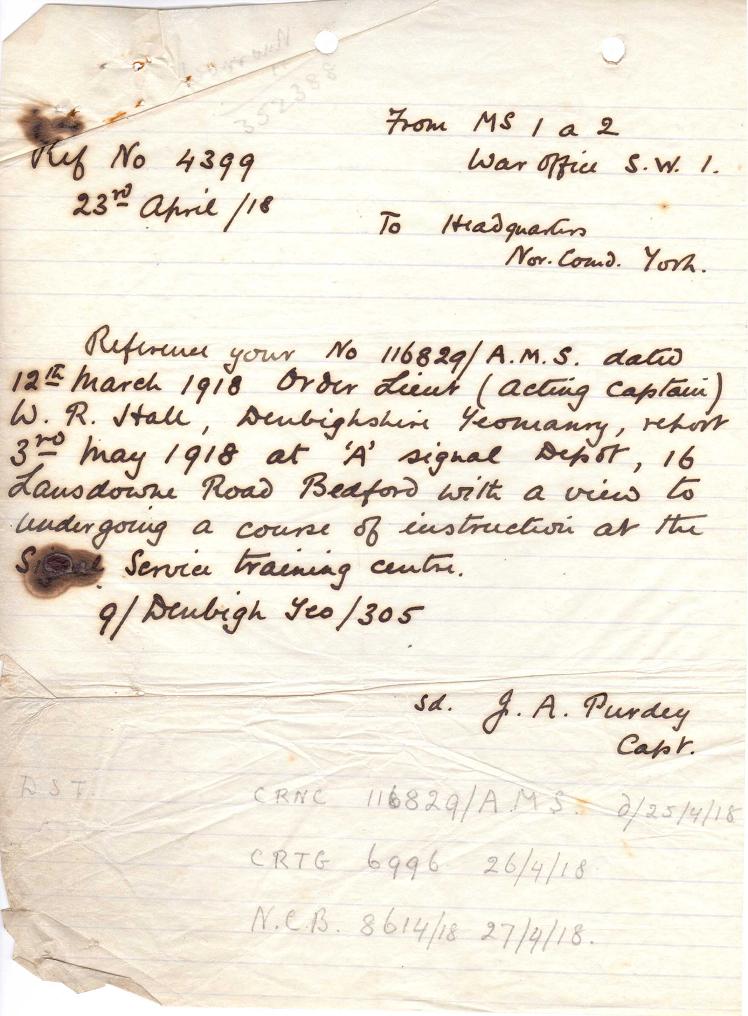 352388
From MS 1 a 2
War Office S.W.1.
Ref No 4399
23rd April /18
To Headquarters
Nor. Comd. York.
Reference your No 116829/A.M.S. dated
12th March 1918 Order Lieut (Acting Captain)
W. R. Hall, Denbighshire Yeomanry, report
3rd May 1918 at 'A' signal Depôt, 16
Lansdowne Road Bedford with a view to
undergoing a course of instruction at the
Signal Service training centre.
9/Denbigh Yeo/305
sd. J. A. Purdey
Capt.
DST.
CRNC 116829/A.M.S. d/25/4/18
CRTG 6996 26/4/18
N.C.B. 8614/18 27/4/18.